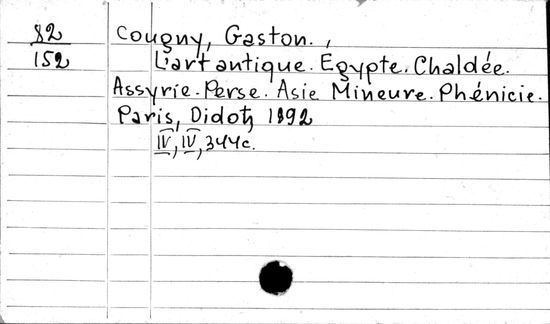 82
152
Cougny, Gaston.,
L'art antique. Egypte. Chaldée.
Assyrie. Perse. Asie Mineure. Phénicie.
Paris, Didot, 1892
IV, IV, 344c.